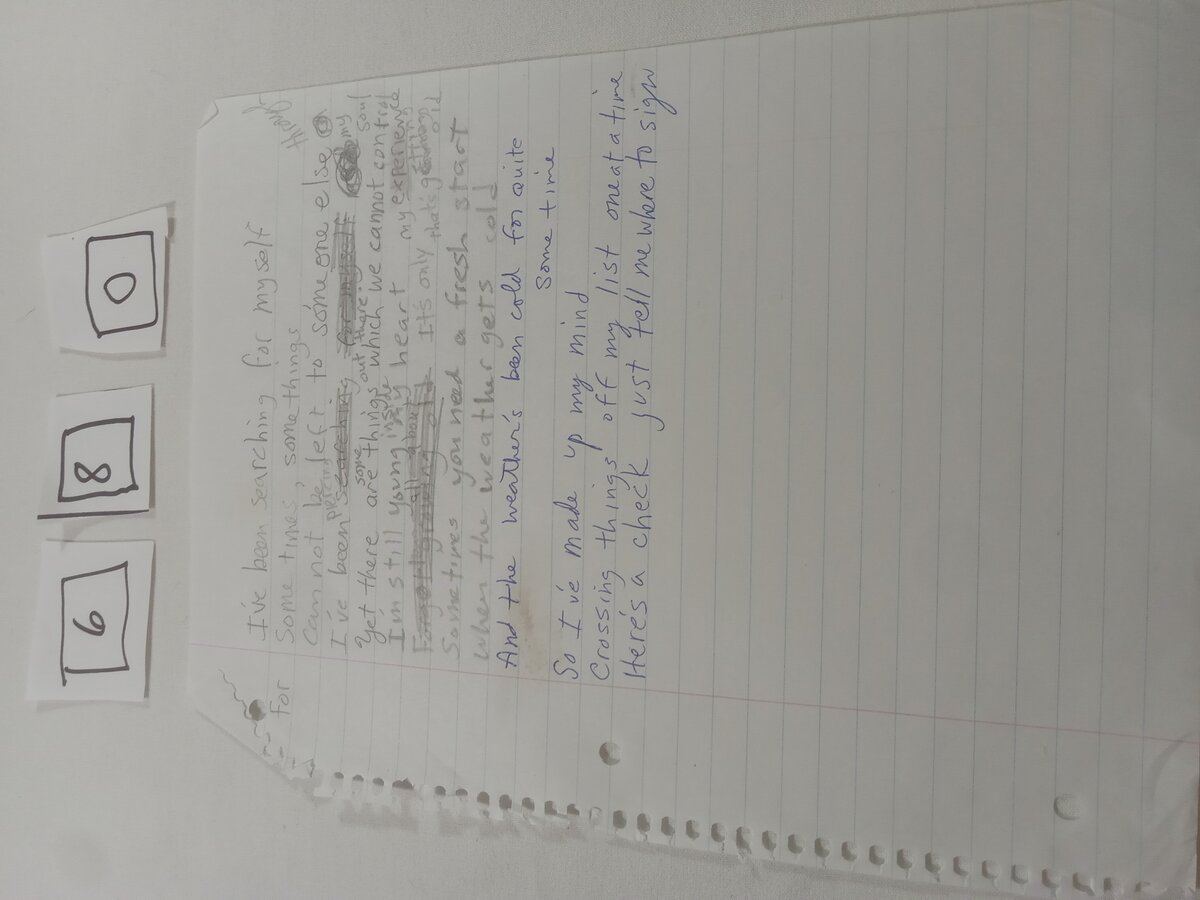 6 8 0
I've been searching for myself
For Some times, some things
Can not be left to someone else
I've been searching for myself my soul
placing
Yet there are some things out there which we cannot control
I'm still young inside my heart my experience
all about It's only that's getting old
Sometimes you need a fresh start
When the weather gets cold
And the weather's been cold for quite
some time
So I've made up my mind
Crossing things off my list one at a time
Here's a check just tell me where to sign